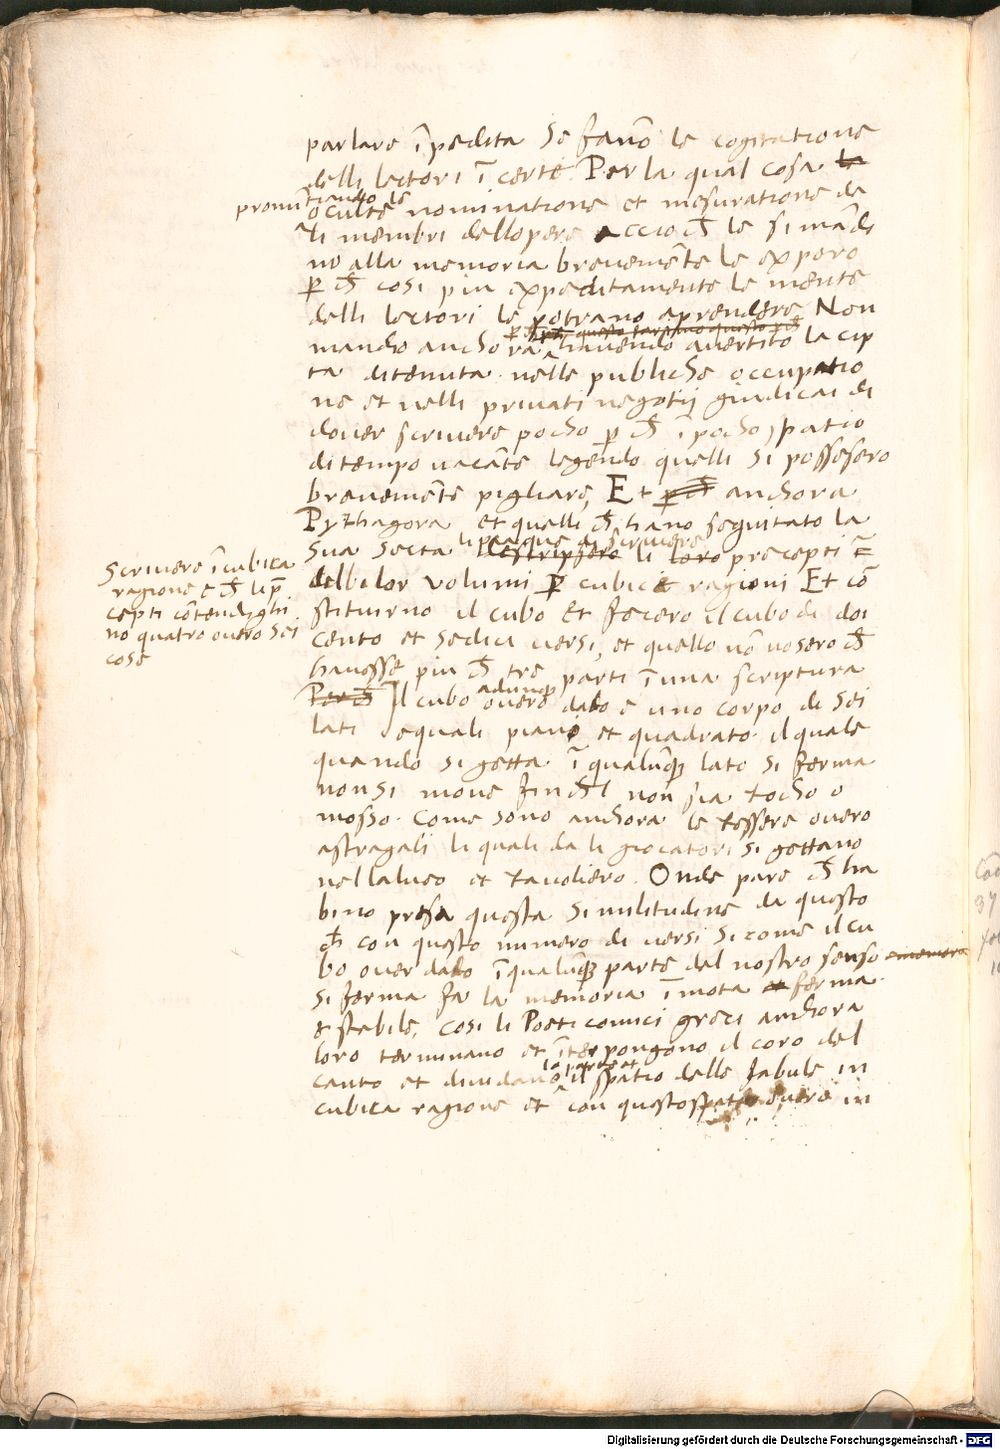 parlare ĩpedita se fanõ le cogitatione
delli lectori ĩcerte. Per la qual cosa la
pronũtiando le
oculte nominatione et mesuratione de
li membri dellopere accio ch̃ le si mãdi
no alla memoria brevemẽte le expero
p̱ ch̃ cosi piu expeditamente le mente
delli lectori le potrano aprendere Non
mancho anchora havendo avertito la cip
ta ditenuta nelle publiche occupatio
ne et nelli privati negotij giudicai di
dover scrivere pocho p̱ ch̃ ĩpocho spatio
di tempo vacãte legendo quelli si possesero
brevemẽte pigliare, Et p̱ ch̃ anchora
Pythagora et quelli ch̃ hano seguitato la
sua secta li piacque di scrivere
descripsero li loro precepti ĩ
delli lor volumi p̱ cubice ragioni Et cõ
stituirno il cubo Et fecero il cubo di doi
cento et sedici versi, et quello nõ vosero ch̃
havesse piu ch̃ tre parti ĩ una scriptura
Per ch̃ Il cubo adunq̃ overo dado e uno corpo di sei
lati equali piano et quadrato il quale
quando si getta ĩ qualũq̃ lato si ferma
non si move finch̃ l non sia tocho o
mosso. Come sono anchora le tessere overo
astragali li quali da li giocatori si gettano
nellalveo et tavoliero. Onde pare ch̃ ha
bino presa questa similitudine da questo
ch̃ con questo numero di versi si come il cu
bo over dado ĩ qualũq̃ parte del nostro senso ememora
si ferma fa la memoria ĩmota et ferma
e stabile, Cosi li Poeti comici greci anchora
loro terminano et ĩterpongono il coro del
canto et dividano il spatio delle fabule in
cubica ragione et con questo spatio overo in
Scrivere ĩ cubica
ragione e ch̃ li p̃
cepti cõtendeghi
no quatro overo sei
cose
Digitalisierung gefördert durch die Deutsche Forschungsgemeinschaft - DFG